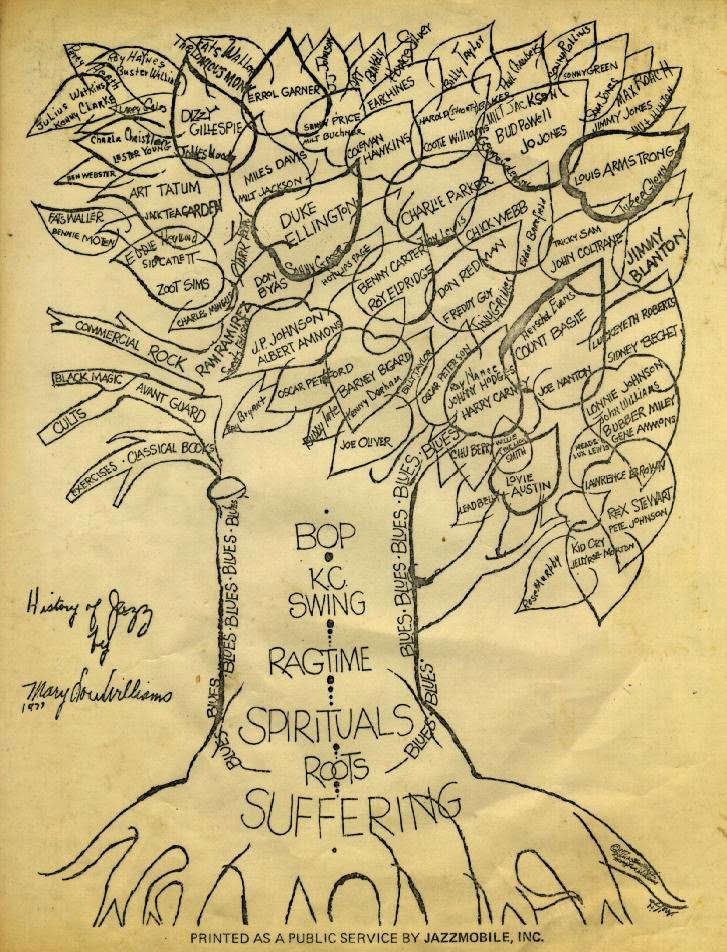 Roy Haynes
Buster Williams
Fats Waller
THELONIOUS MONK
Horace Silver
Billy Taylor
Sonny Rollins
SONNY GREEN
MAX ROACH
JIMMY JONES
Julius Watkins
Kenny Clarke
DIZZY
GILLESPIE
James Moody
ERROL GARNER
SAMMY PRICE
MILT BUCHNER
EARL HINES
COLEMAN
HAWKINS
Cootie Williams
MILT JACKSON
BUD POWELL
JO JONES
LOUIS ARMSTRONG
Charlie Christian
LESTER YOUNG
BEN WEBSTER
ART TATUM
JACK TEAGARDEN
MILES DAVIS
MILT JACKSON
DUKE
ELLINGTON
Sonny Greer
CHARLIE PARKER
CHICK WEBB
TRICKY SAM
JOHN COLTRANE
JIMMY
BLANTON
FATS WALLER
BENNIE MOTEN
SID CATLETT
ZOOT SIMS
CHARLES MINGUS
DON
BYAS
HOT LIPS PAGE
BENNY CARTER
ROY ELDRIDGE
DON REDMAN
FREDDY GUY
Herschel Evans
COUNT BASIE
LUCKEYETH ROBERTS
SIDNEY BECHET
COMMERCIAL ROCK
RAM RAMIREZ
J.P. JOHNSON
ALBERT AMMONS
BLACK MAGIC
AVANT GUARD
CULTS
EXERCISES · CLASSICAL BOOKS
Ray Bryant
OSCAR PETTIFORD
BARNEY BIGARD
Kenny Dorham
BILLY TAYLOR
OSCAR PETERSON
Ray Nance
JOHNNY HODGES
HARRY CARNEY
JOE NANTON
LONNIE JOHNSON
John Williams
BUBBER MILEY
GENE AMMONS
JOE OLIVER
CHU BERRY
WILLIE
THE LION
SMITH
LOVIE
AUSTIN
LEADBELLY
MEADE
LUX LEWIS
LAWRENCE BROWN
REX STEWART
PETE JOHNSON
KID ORY
JELLYROLL MORTON
Rose Murphy
BLUES · BLUES · BLUES · BLUES
BLUES · BLUES · BLUES · BLUES
BOP
K.C.
SWING
RAGTIME
SPIRITUALS
ROOTS
SUFFERING
BLUES
BLUES
BLUES
BLUES
History of Jazz
by
Mary Lou Williams
1977
PRINTED AS A PUBLIC SERVICE BY JAZZMOBILE, INC.